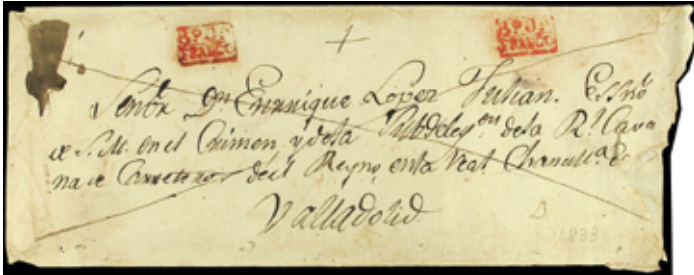 FRANCO
FRANCO
Señor Dn Enrrique Lopez Julian. Essno
de S.M. en el Crimen y de la Subdeleon de la Rl Cava
na de Carreteros del Reyno en la Real Chancilla de
Valladolid
1833